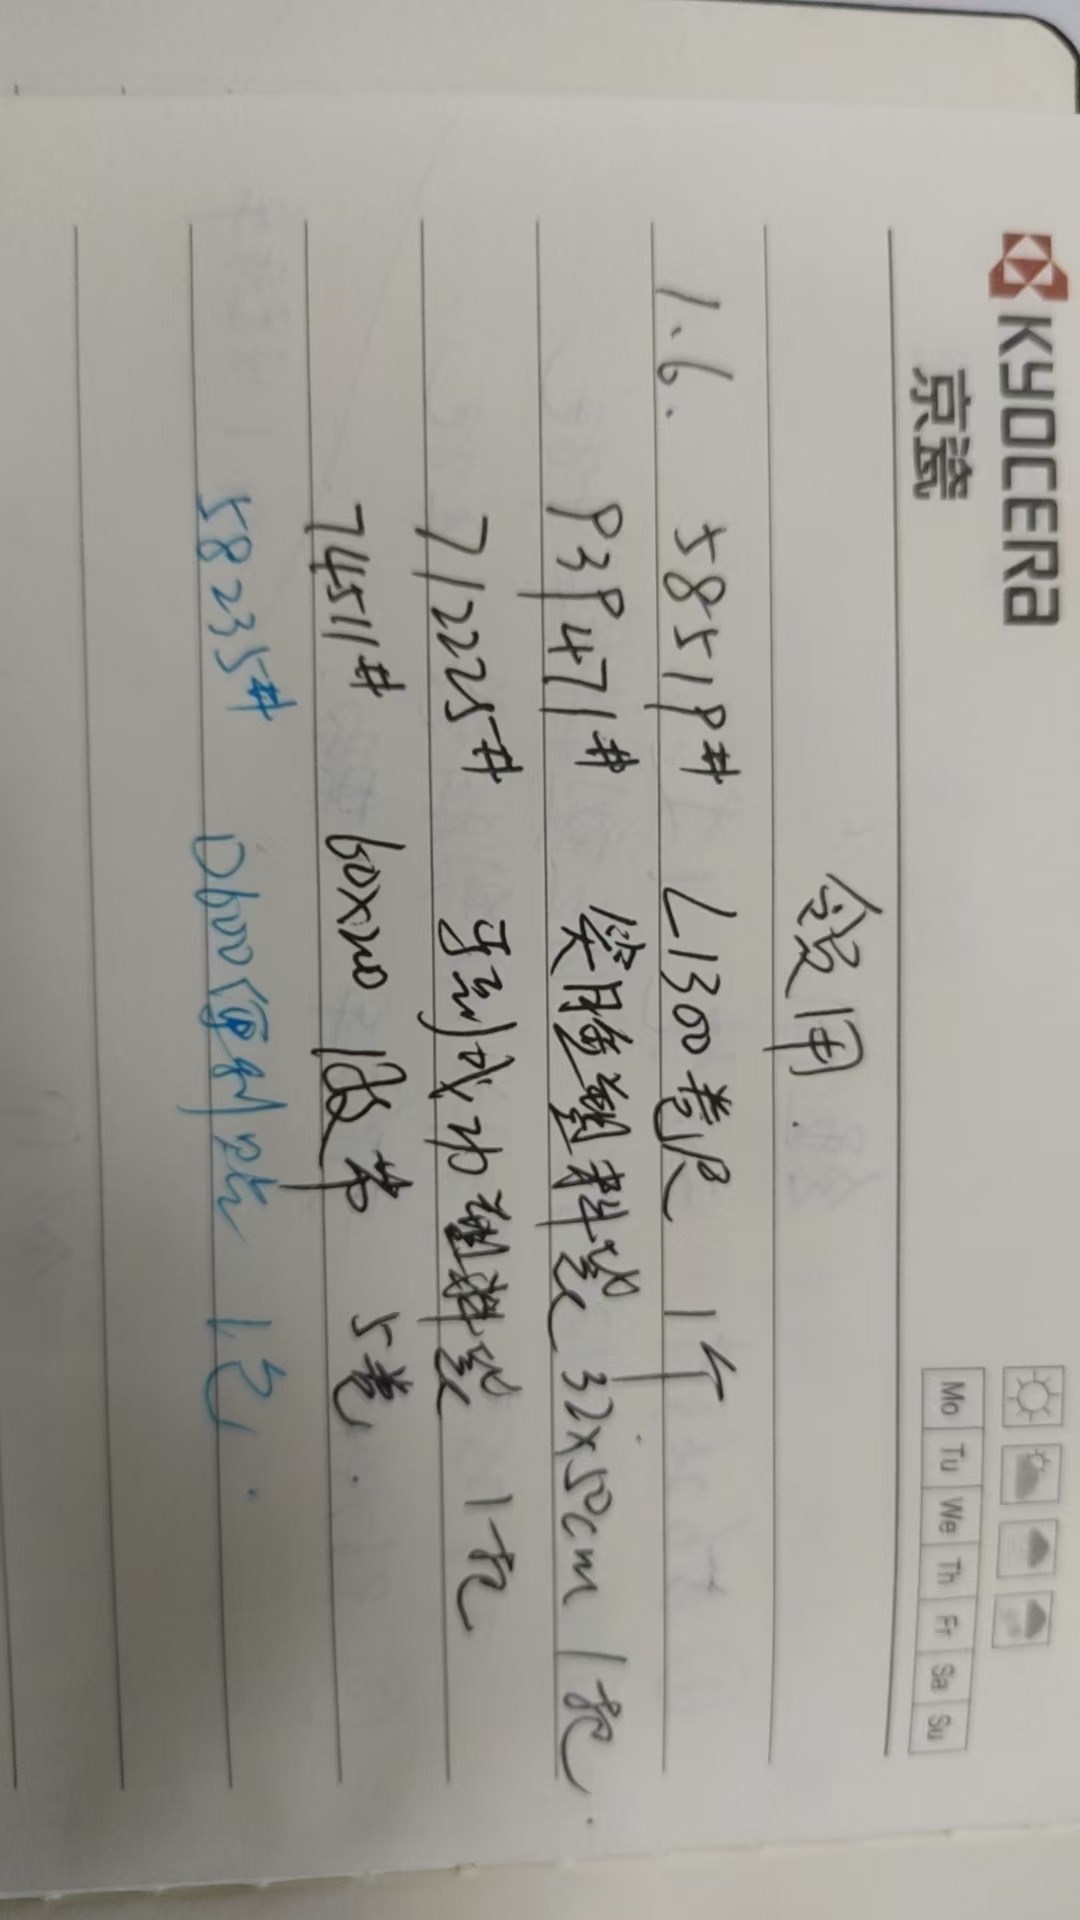 KYOCERA
京瓷
Mo Tu We Th Fr Sa Su
领用
1.6. 5851P# L1300卷尺 1个
P3P471# 塑料袋 32x50cm 1扎.
71225# 手动式 塑料袋 1扎
7451# 60x200 胶带 5卷.
58235# D600便利贴 1包.